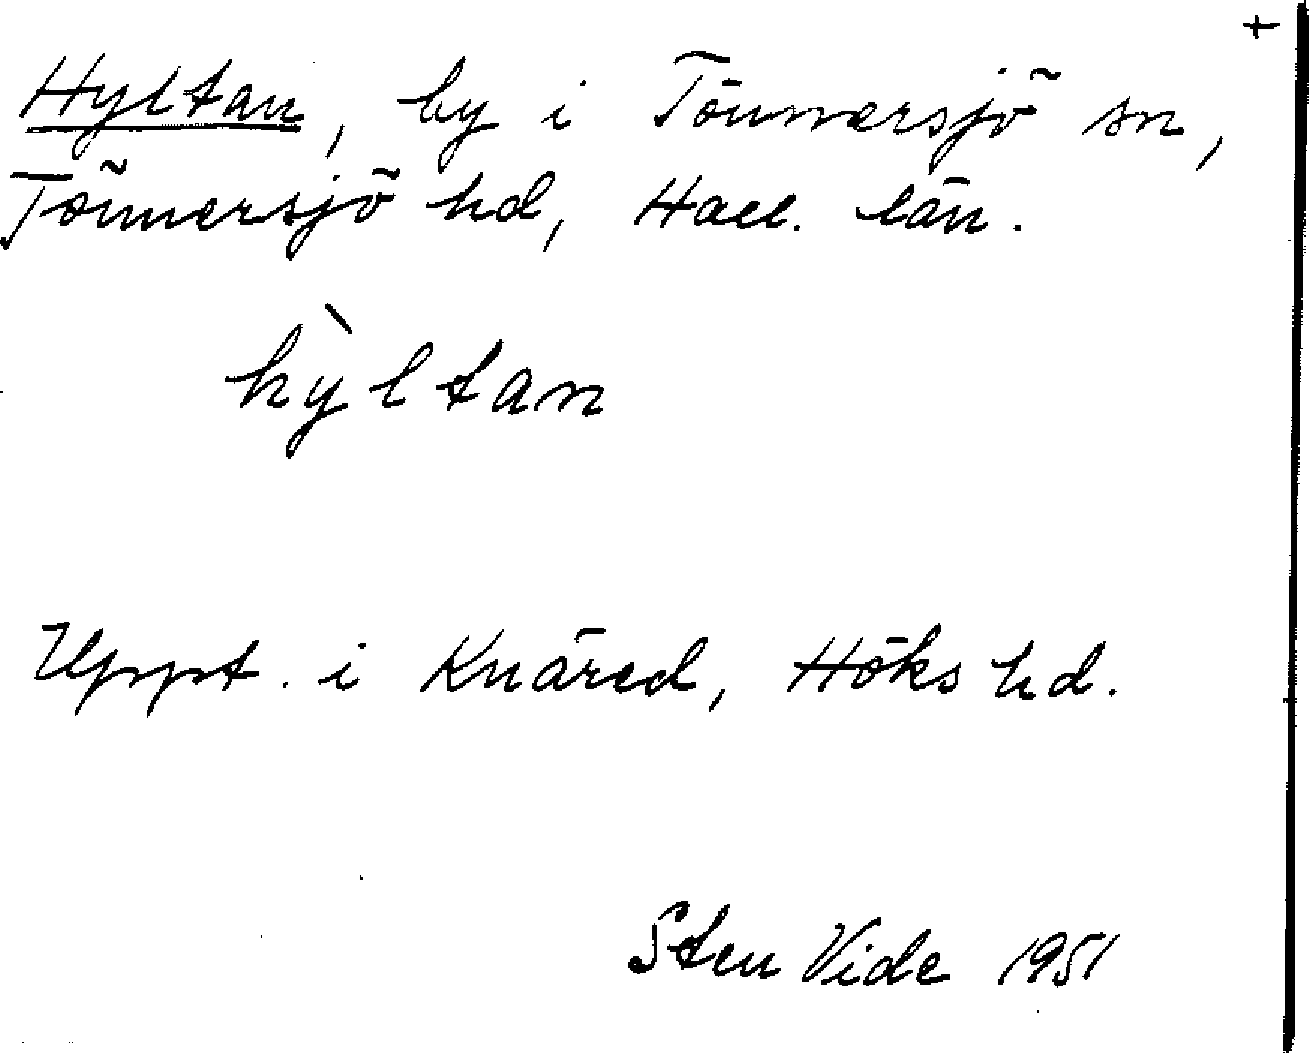 +
Hyltan, by i Tönnersjö sn,
Tönnersjö hd, Hall. län.
hỳltan
Uppt. i Knäred, Höks hd.
Sten Vide 1951